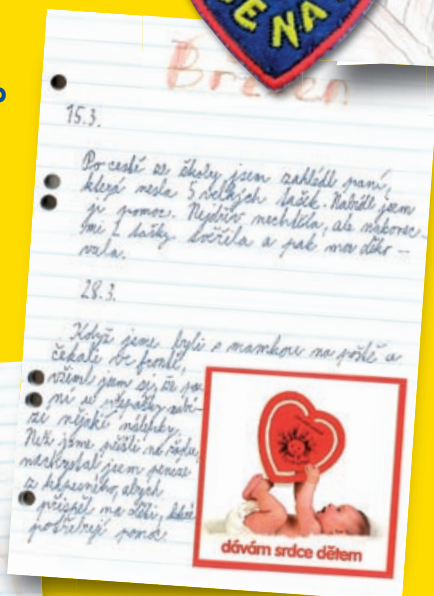 ENA
Březen
15.3.
Po cestě ze školy jsem zahlédl paní,
která nesla 5 velkých tašek. Nabídl jsem
jí pomoc. Nejdřív nechtěla, ale nakonec
mi 2 tašky svěřila a pak mě děko-
vala.
28.3.
Když jsme byli s mamkou na poště a
čekali ve frontě,
všiml jsem si, že pa-
ní u přepážky nabí-
zí nějaké nálepky.
Než jsme přišli na řadu,
nachystal jsem peníze
z kapesného, abych
přispěl na děti, které
potřebují pomoc.
dávám srdce dětem